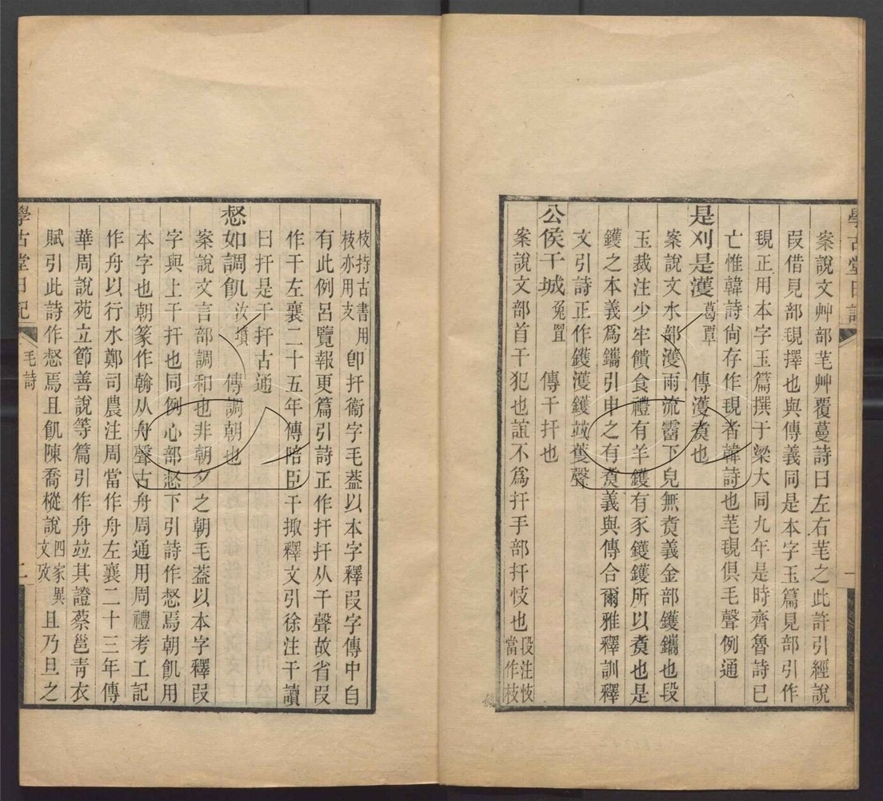 學古堂日記 一
案說文艸部芼艸覆蔓詩曰左右芼之此許引經說
叚借見部覒擇也與傳義同是本字玉篇見部引作
覒正用本字玉篇撰于梁大同九年是時齊魯詩已
亡惟韓詩尙存作覒者韓詩也芼覒俱毛聲例通
是刈是濩 葛覃 傳濩煑也
案說文水部濩雨流霤下皃無煑義金部鑊鑴也段
玉裁注少牢饋食禮有羊鑊有豕鑊鑊所以煑也是
鑊之本義爲鑴引申之有煑義與傳合爾雅釋訓釋
文引詩正作鑊濩鑊竝蒦聲
公侯干城 兔罝 傳干扞也
案說文部首干犯也誼不爲扞手部扞忮也 段注忮當作枝
枝持古書用枝亦用支 卽扞衞字毛葢以本字釋叚字傳中自
有此例呂覽報更篇引詩正作扞扞从干聲故省叚
作干左襄二十五年傳陪臣干掫釋文引徐注干讀
曰扞是干扞古通
惄如調飢 汝墳 傳調朝也
案說文言部調和也非朝夕之朝毛葢以本字釋叚
字與上干扞也同例心部惄下引詩作惄焉朝飢用
本字也朝篆作翰从舟聲古舟周通用周禮考工記
作舟以行水鄭司農注周當作舟左襄二十三年傳
華周說苑立節善說等篇引作舟竝其證蔡邕青衣
賦引此詩作惄焉且飢陳喬樅說 四家異文攷 且乃旦之
學古堂日記 毛詩 二